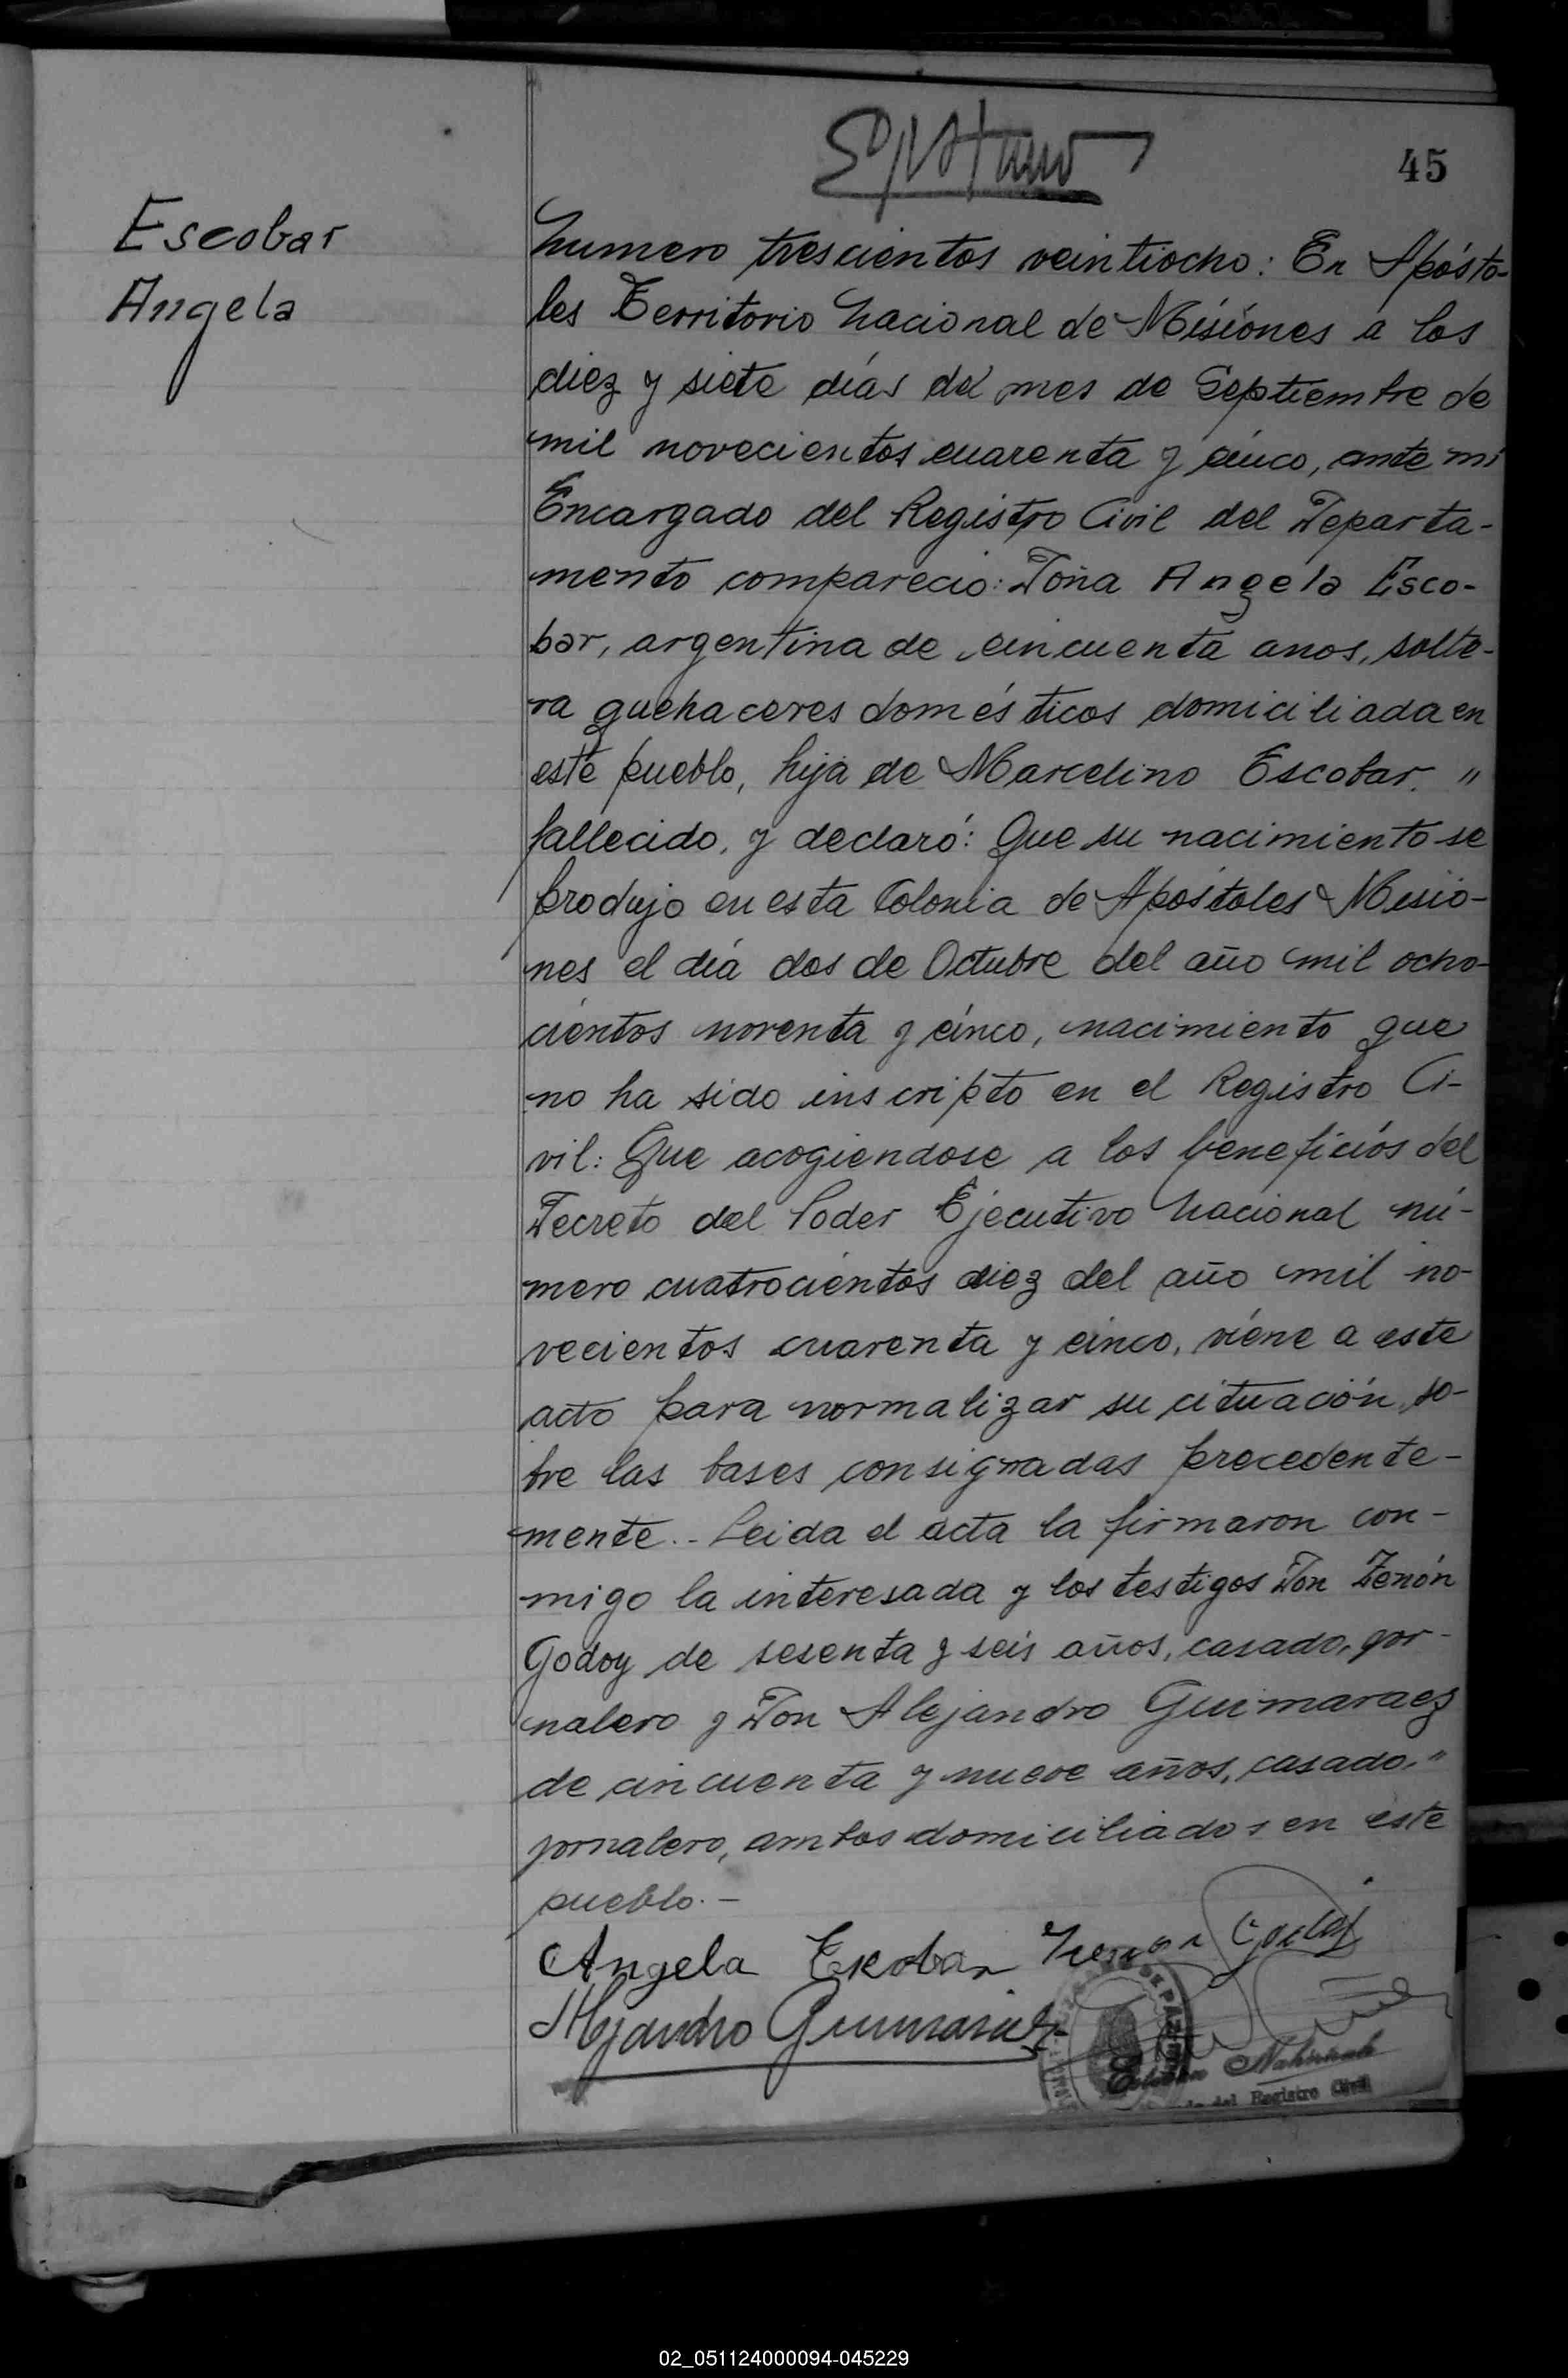 45
Escobar
Angela
Numero trescientos veintiocho: En Apósto-
les Territorio Nacional de Misiones a los
diez y siete días del mes de Septiembre de
mil novecientos cuarenta y cinco, ante mi
Encargado del Registro Civil del Departa-
mento comparecio: Doña Angela Esco-
bar, argentina de cincuenta anos, solte-
ra quehaceres domésticos domiciliada en
este pueblo, hija de Marcelino Escobar. "
fallecido, y declaró: Que su nacimiento se
produjo en esta Colonia de Apóstoles Misio-
nes el día dos de Octubre del año mil ocho-
cientos noventa y cinco, nacimiento que
no ha sido inscripto en el Registro Ci-
vil: Que acogiendose a los beneficios del
Decreto del Poder Ejecutivo Nacional nú-
mero cuatrocientos diez del año mil no-
vecientos cuarenta y cinco, viene a este
acto para normalizar su cituación so-
bre las bases consignadas precedente-
mente.- Leida el acta la firmaron con-
migo la interesada y los testigos Don Zenón
Godoy de sesenta y seis años, casado, jor-
nalero y Don Alejandro Guimaraez
de cincuenta y nueve años, casado, "
jornalero, ambos domiciliados en este
pueblo.-
Angela Escobar Zenon Godoy
Alejandro Guimaraez
Esteban
del Registro Civil
02_051124000094-045229